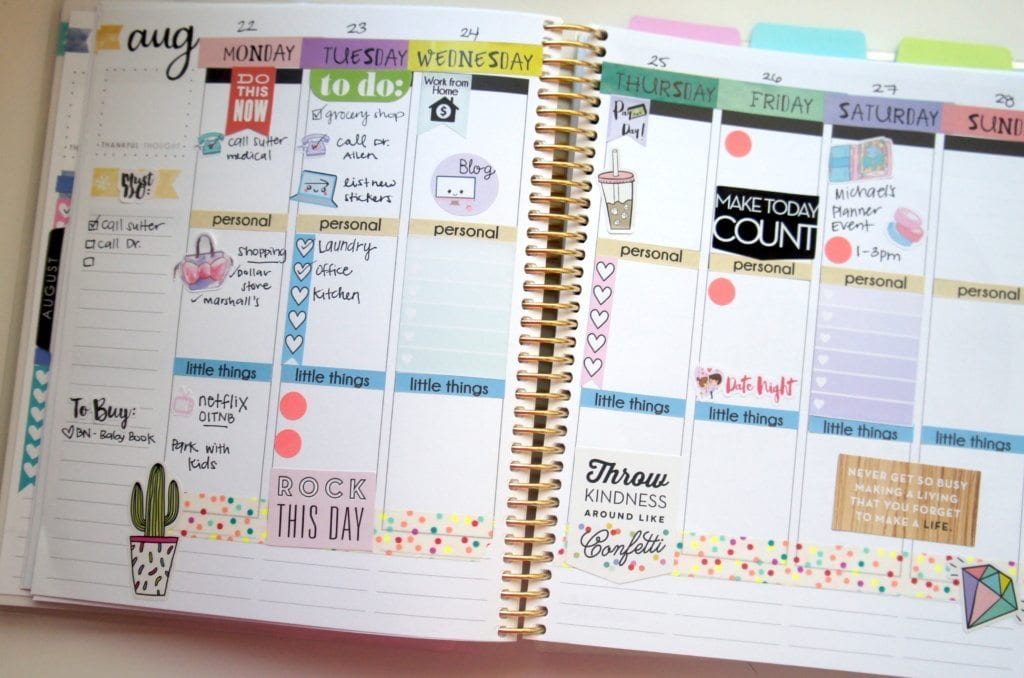 aug
THANKFUL THOUGHT
Must
Do:
call Sutter
call Dr.
To Buy:
BN - Baby Book
AUGUST
22
MONDAY
DO
THIS
NOW
call Sutter
medical
personal
shopping
Dollar
store
marshall's
little things
netflix
OITNB
Park with
kids
23
TUESDAY
to do:
grocery shop
call Dr.
Allen
list new
stickers
personal
Laundry
Office
Kitchen
little things
ROCK
THIS DAY
24
WEDNESDAY
Work from
Home
$
Blog
personal
little things
25
THURSDAY
Pay
Day!
personal
little things
THROW
KINDNESS
AROUND LIKE
Confetti
26
FRIDAY
MAKE TODAY
COUNT
personal
Date Night
little things
27
SATURDAY
Michael's
Planner
Event
1-3pm
personal
little things
NEVER GET SO BUSY
MAKING A LIVING
THAT YOU FORGET
TO MAKE A LIFE.
28
SUND
personal
little things